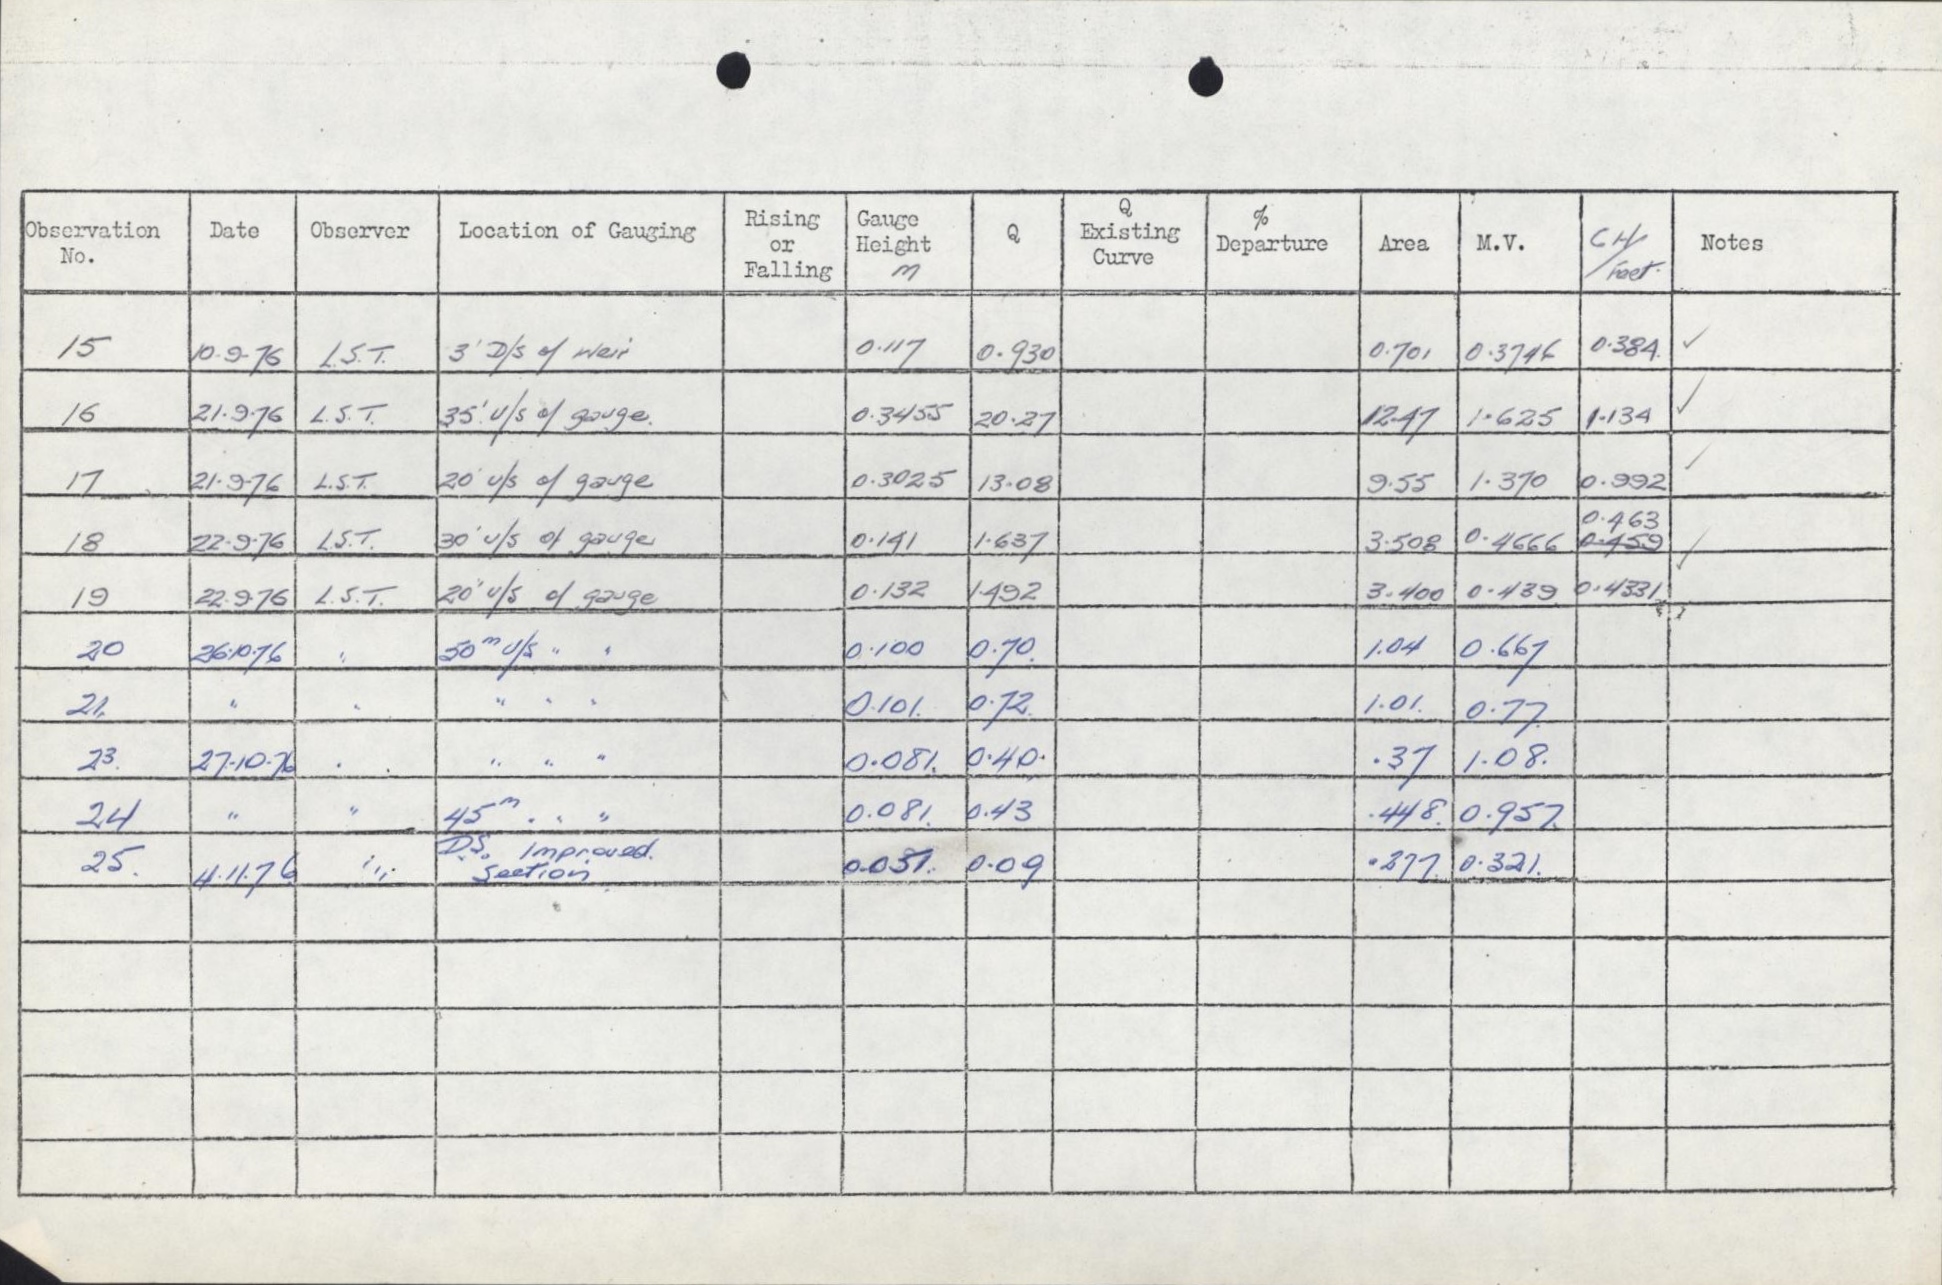 Observation No. Date Observer Location of Gauging Rising or Falling Gauge Height m Q Q Existing Curve % Departure Area M.V. GH/Feet. Notes
15 10.9.76 L.S.T. 3' D/s of weir 0.117 0.930 0.701 0.3746 0.384 ✓
16 21.9.76 L.S.T. 35' u/s of gauge. 0.3455 20.27 12.47 1.625 1.134 ✓
17 21.9.76 L.S.T. 20' u/s of gauge 0.3025 13.08 9.55 1.370 0.992 ✓
18 22.9.76 L.S.T. 30' u/s of gauge 0.141 1.637 3.508 0.4666 0.463 0.459 ✓
19 22.9.76 L.S.T. 20' u/s of gauge 0.132 1.492 3.400 0.439 0.4331
20 26.10.76 " 50m U/s " " 0.100 0.70. 1.04 0.667
21. " " " " " 0.101. 0.72. 1.01. 0.77.
23. 27.10.76 " " " " 0.081. 0.40. .37 1.08.
24 " " 45m " " " 0.081. 0.43 .448. 0.957.
25. 4.11.76 " D.S. Improved. Section 0.051. 0.09 .277. 0.321.